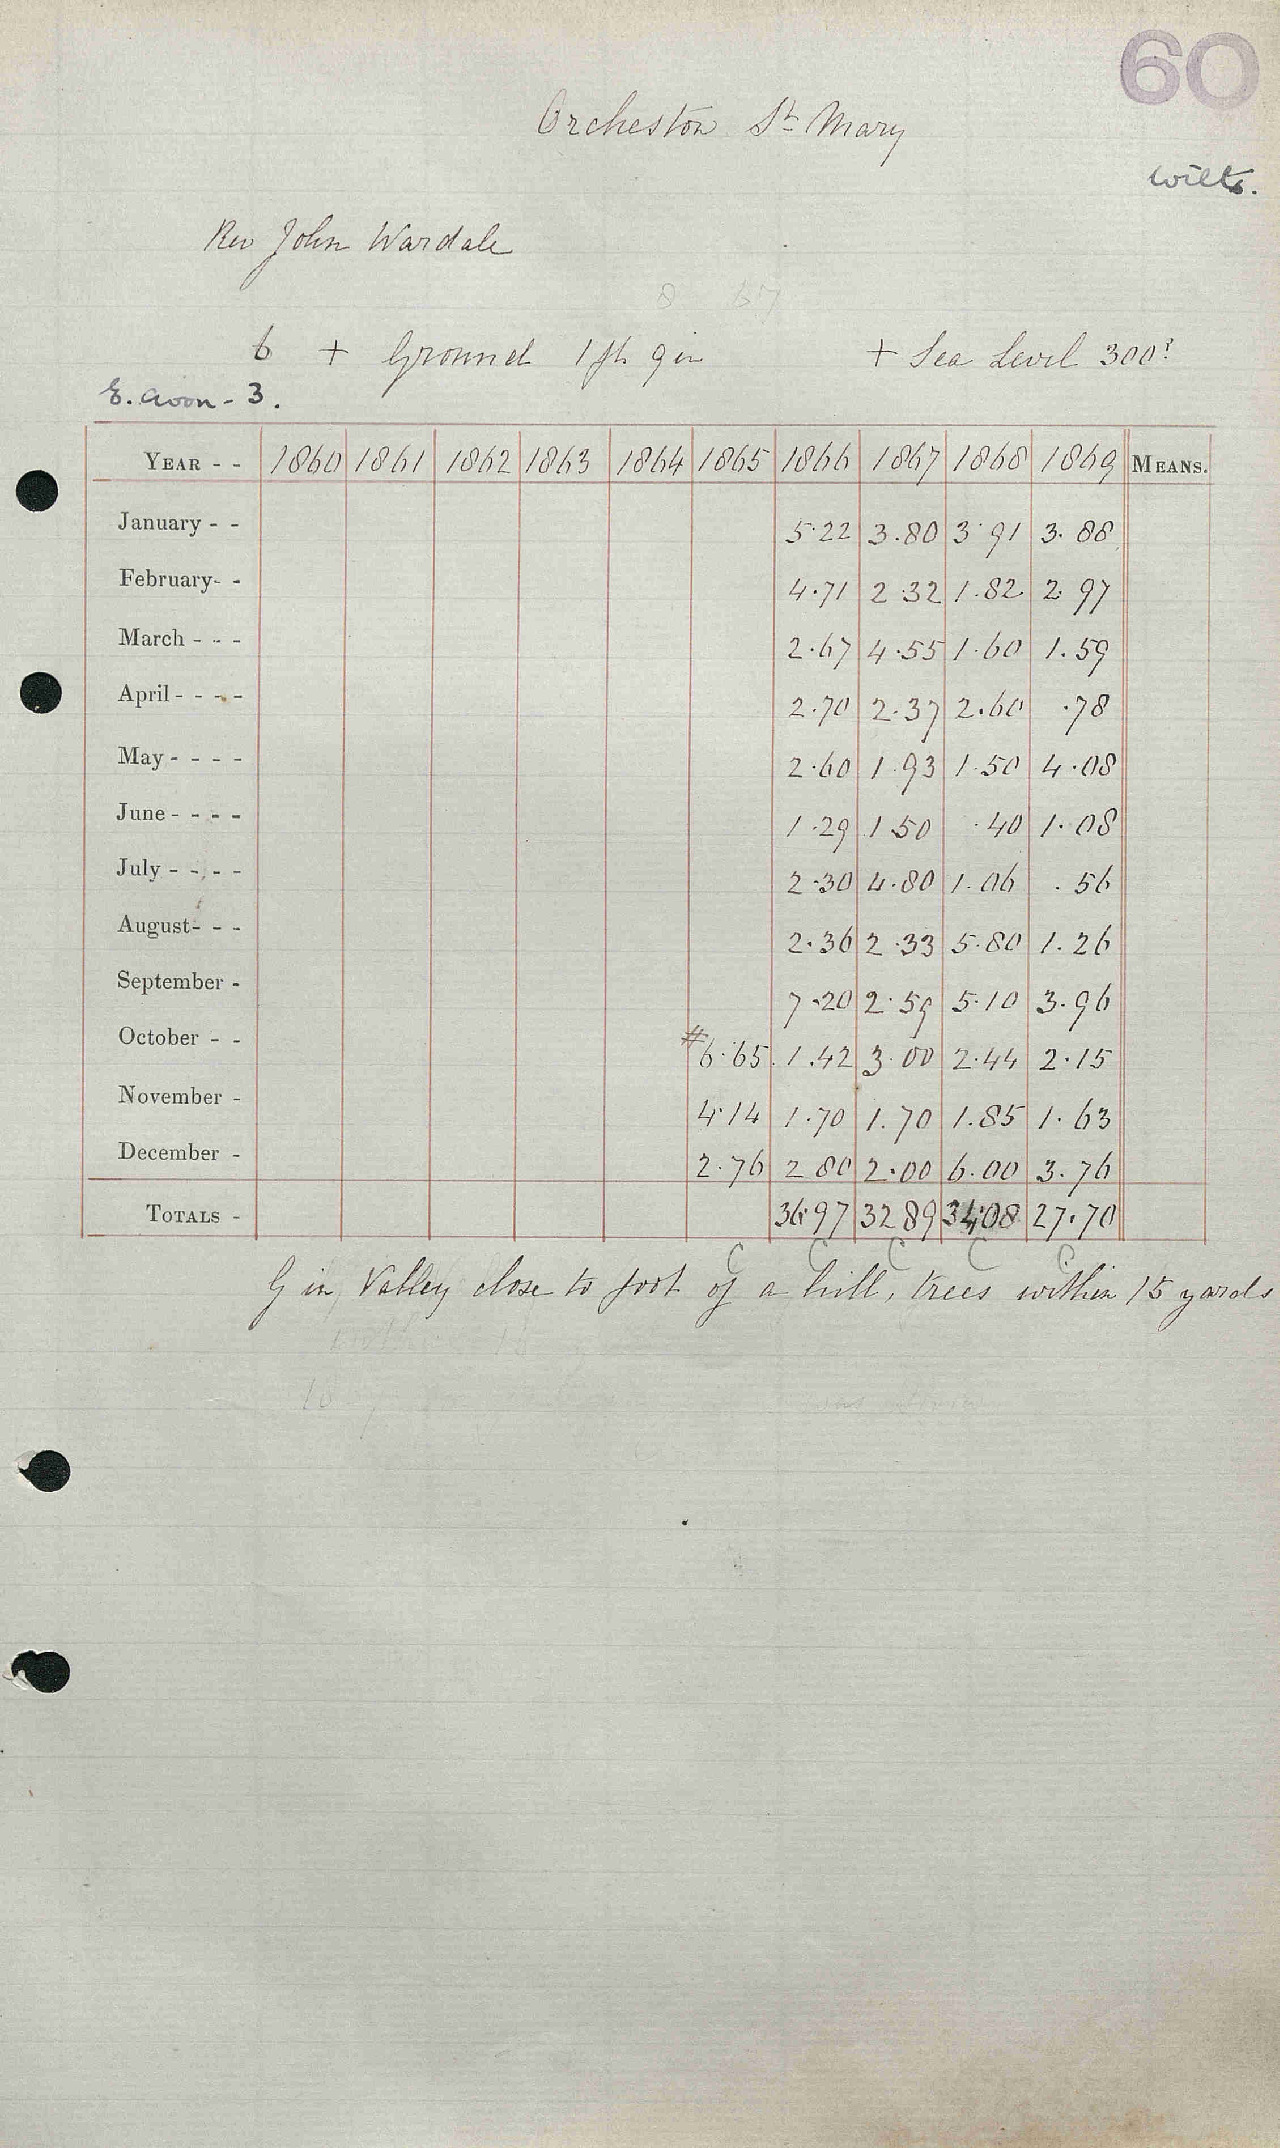 60
Orcheston St Mary
Wilts.
Rev John Wardale
8 67
6 + Ground 1 ft 9 in + Sea Level 300?
E. Avon - 3.
YEAR - - 1860 1861 1862 1863 1864 1865 1866 1867 1868 1869 MEANS.
January - - 5.22 3.80 3.91 3.88
February- - 4.71 2.32 1.82 2.97
March - - - 2.67 4.55 1.60 1.59
April - - - - 2.70 2.37 2.60 .78
May - - - - 2.60 1.93 1.50 4.08
June - - - - 1.29 1.50 .40 1.08
July - - - - 2.30 4.80 1.06 .56
August- - - 2.36 2.33 5.80 1.26
September - 7.20 2.59 5.10 3.96
October - - #6.65 1.42 3.00 2.44 2.15
November - 4.14 1.70 1.70 1.85 1.63
December - 2.76 2.80 2.00 6.00 3.76
TOTALS - 36.97 32.89 34.08 27.70
C C C C C
G in Valley close to foot of a hill, trees within 15 yards